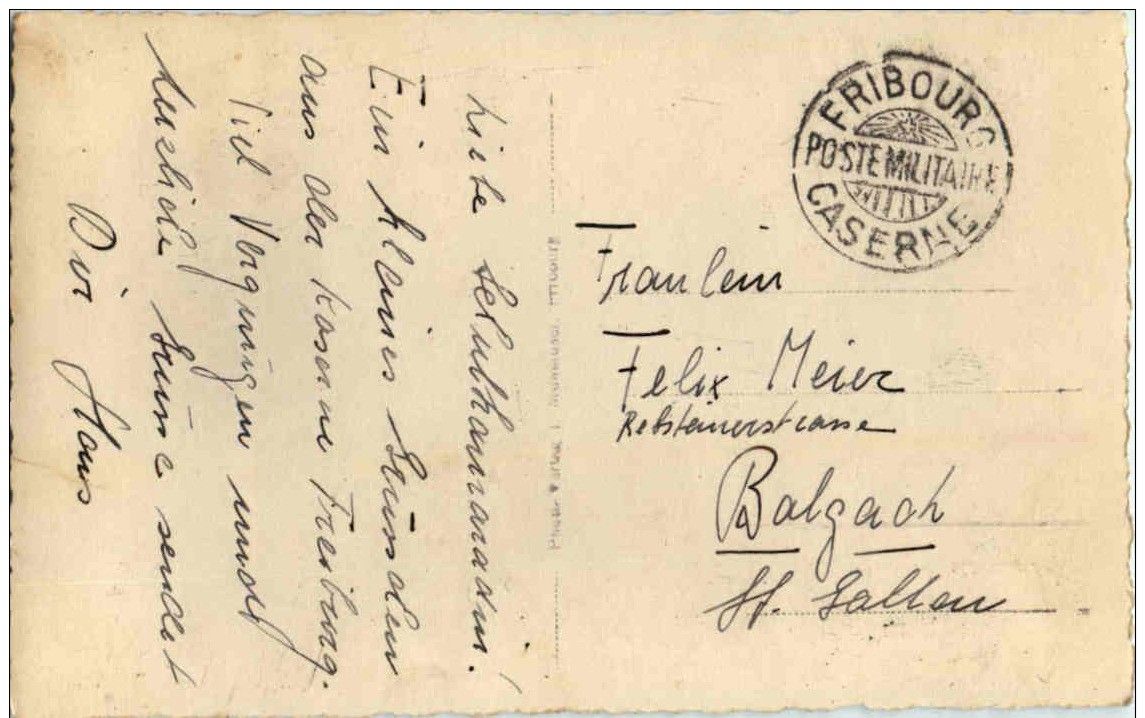 Liebe Schulkamaradin!
Ein kleines
aus der Kaserne Freiburg.
Viel Vergnügen und
sendet
Dir Hans
FRIBOURG
POSTE MILITAIRE
CASERNE
Fraulein
Felix Meier
Rebsteinerstrasse
Balgach
St. Gallen